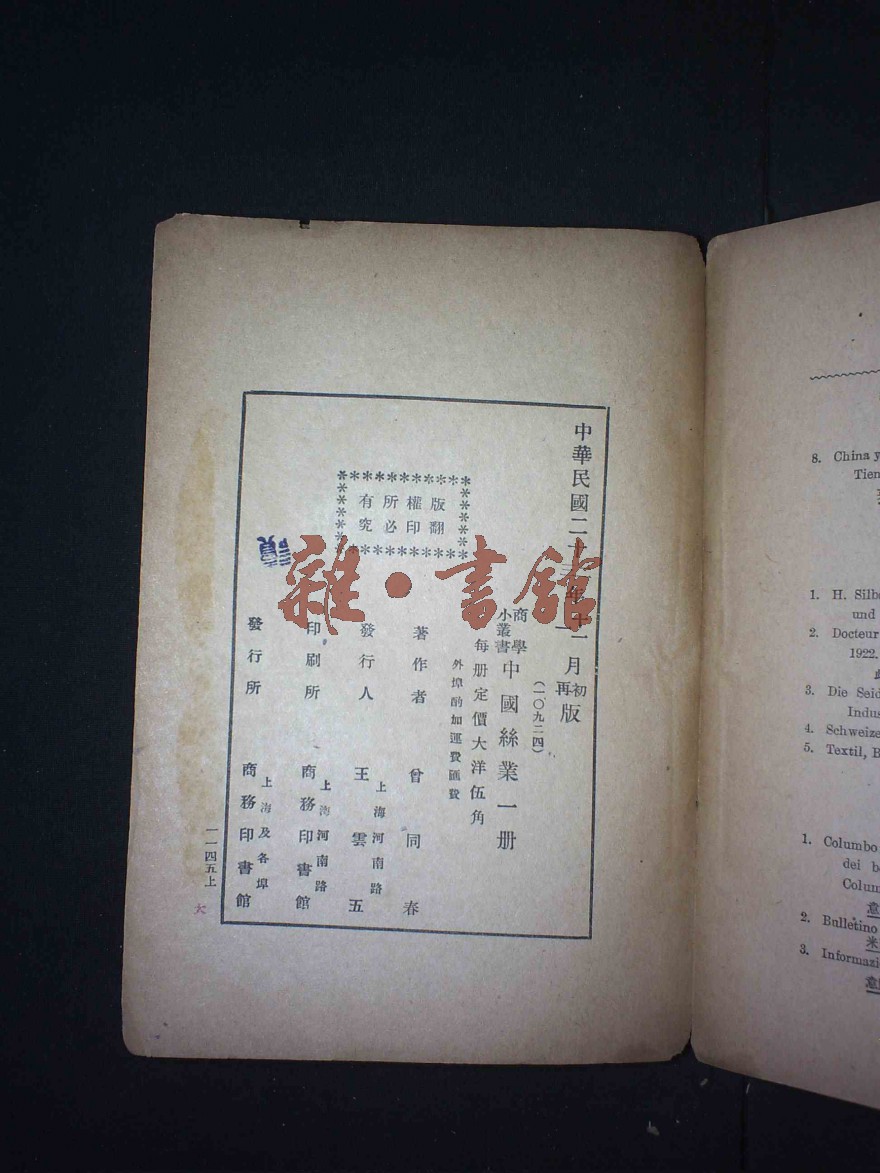 中華民國二十三年十一月初版
再
(一〇九二四)
商學
小叢書
中國絲業一册
每册定價大洋伍角
外埠酌加運費匯費
版權所有
翻印必究
著作者 曾同春
發行人 王雲五
上海河南路
印刷所 商務印書館
上海河南路
發行所 商務印書館
上海及各埠
一一四五上
大
雜·書館
8. China y
Tien
1. H. Silbe
und
2. Docteur
1922.
3. Die Seid
Indus
4. Schweize
5. Textil, B
1. Columbo
dei b
Colum
意
2. Bulletino
米
3. Informazi
意